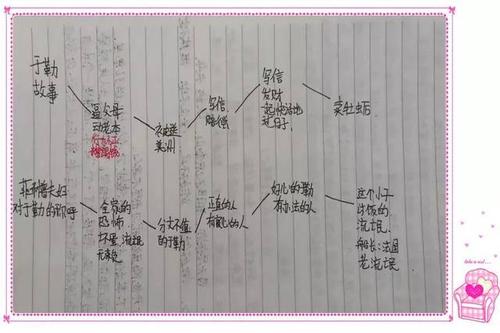 于勒
故事
逼父母
动老本
被送
美洲
写信
赔偿
写信
发财
一起快活地
过日子
卖牡蛎
菲利普夫妇
对于勒的称呼
全家的
恐怖
坏蛋 流氓
无赖
分文不值
的于勒
正直的人
有良心的人
好心的于勒
有办法的人
这个小子
讨饭的
流氓
船长:法国
老流氓